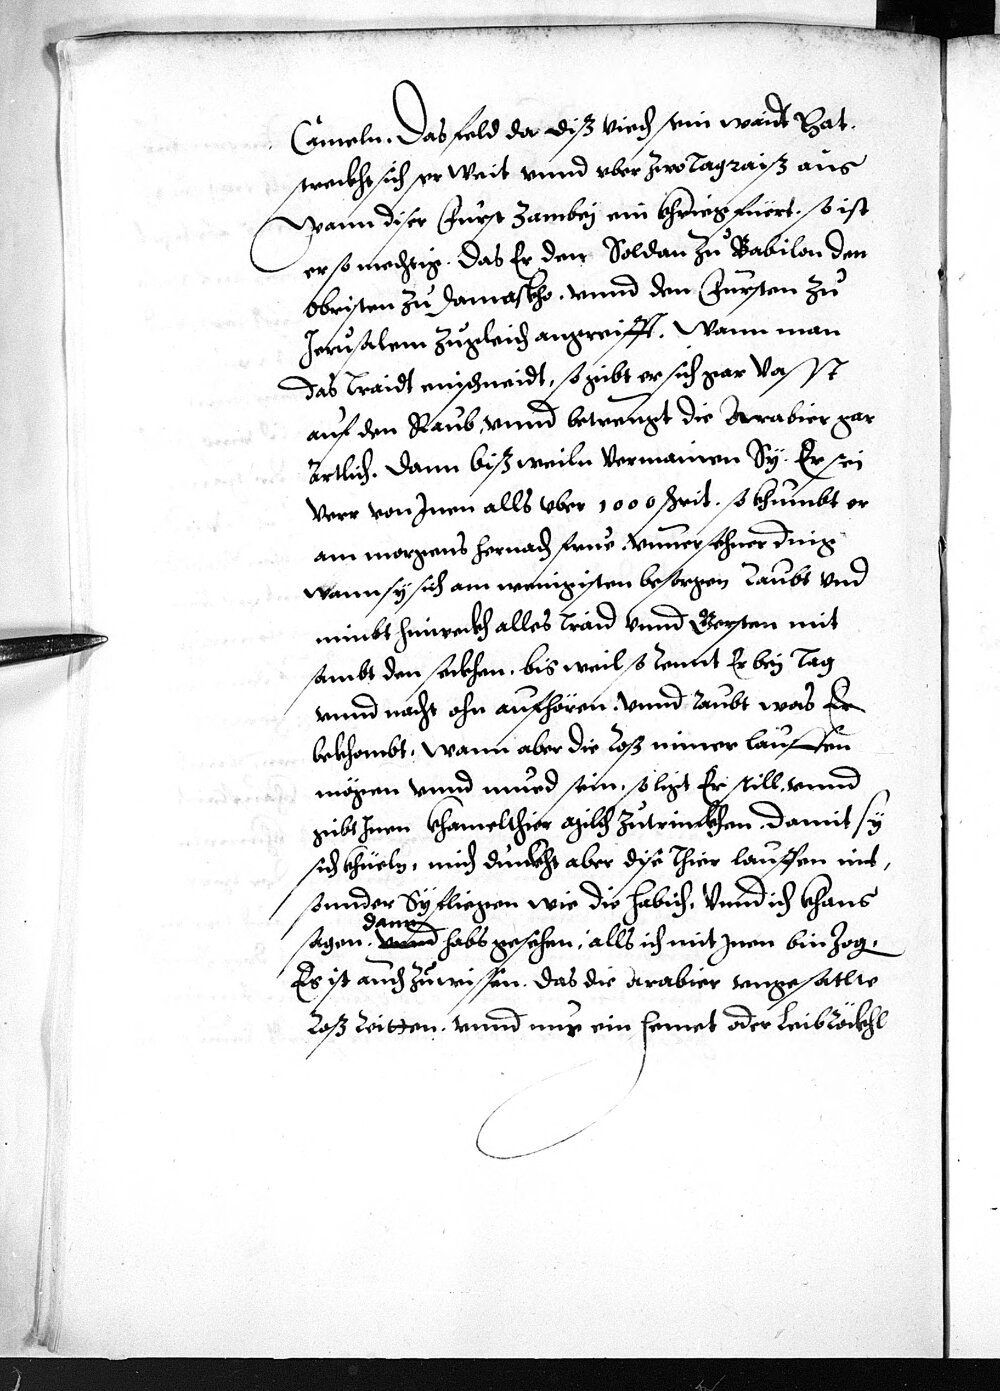 Cameln. Das feld da diß viech sein waidt hat.
streckht sich ser weit vnnd vber zwo Tagraiß aus
Wann diser Fürst Zambej ein khrieg fuert. so ist
er so mechtig. Das Er den Soldan zu Babilon den
obristen zu Damaskho. vnnd den Fürsten zu
Jerusalem zugleich angreifft. Wann man
das Traidt einschneidt, so gibt er sich gar vasst
auf den Raub, vnnd betrengt die Arabier gar
artlich. Dann bißweiln vermainen Sy. Er sei
verr von Inen alls vber 1000 schrit. so khumbt er
am morgens hernach frue. vnuersehner ding
wann sy sich am wenigisten besorgen Raubt vnd
nimbt hinweckh alles Traid vnnd Gersten mit
sambt den seckhen. bisweil so rennt Er bej Tag
vnnd nacht ohn aufhören. vnnd raubt was Er
bekhombt. Wann aber die Roß nimer lauffen
mögen vnnd mued sein. so ligt Er still. vnnd
gibt Inen khamelthier milch zutrinckhen. damit sy
sich khüeln. mich dunckht aber dise Thier lauffen nit,
sonnder Sy fliegen wie die habich. Vnnd ich khans
dann
sagen. vnnd habs gesehen. alls ich mit Inen bin Zog.
Es ist auch zuwissen. das die Arabier vngesatlte
Roß Reitten. vnnd nur ein hemet oder Leibröckhl